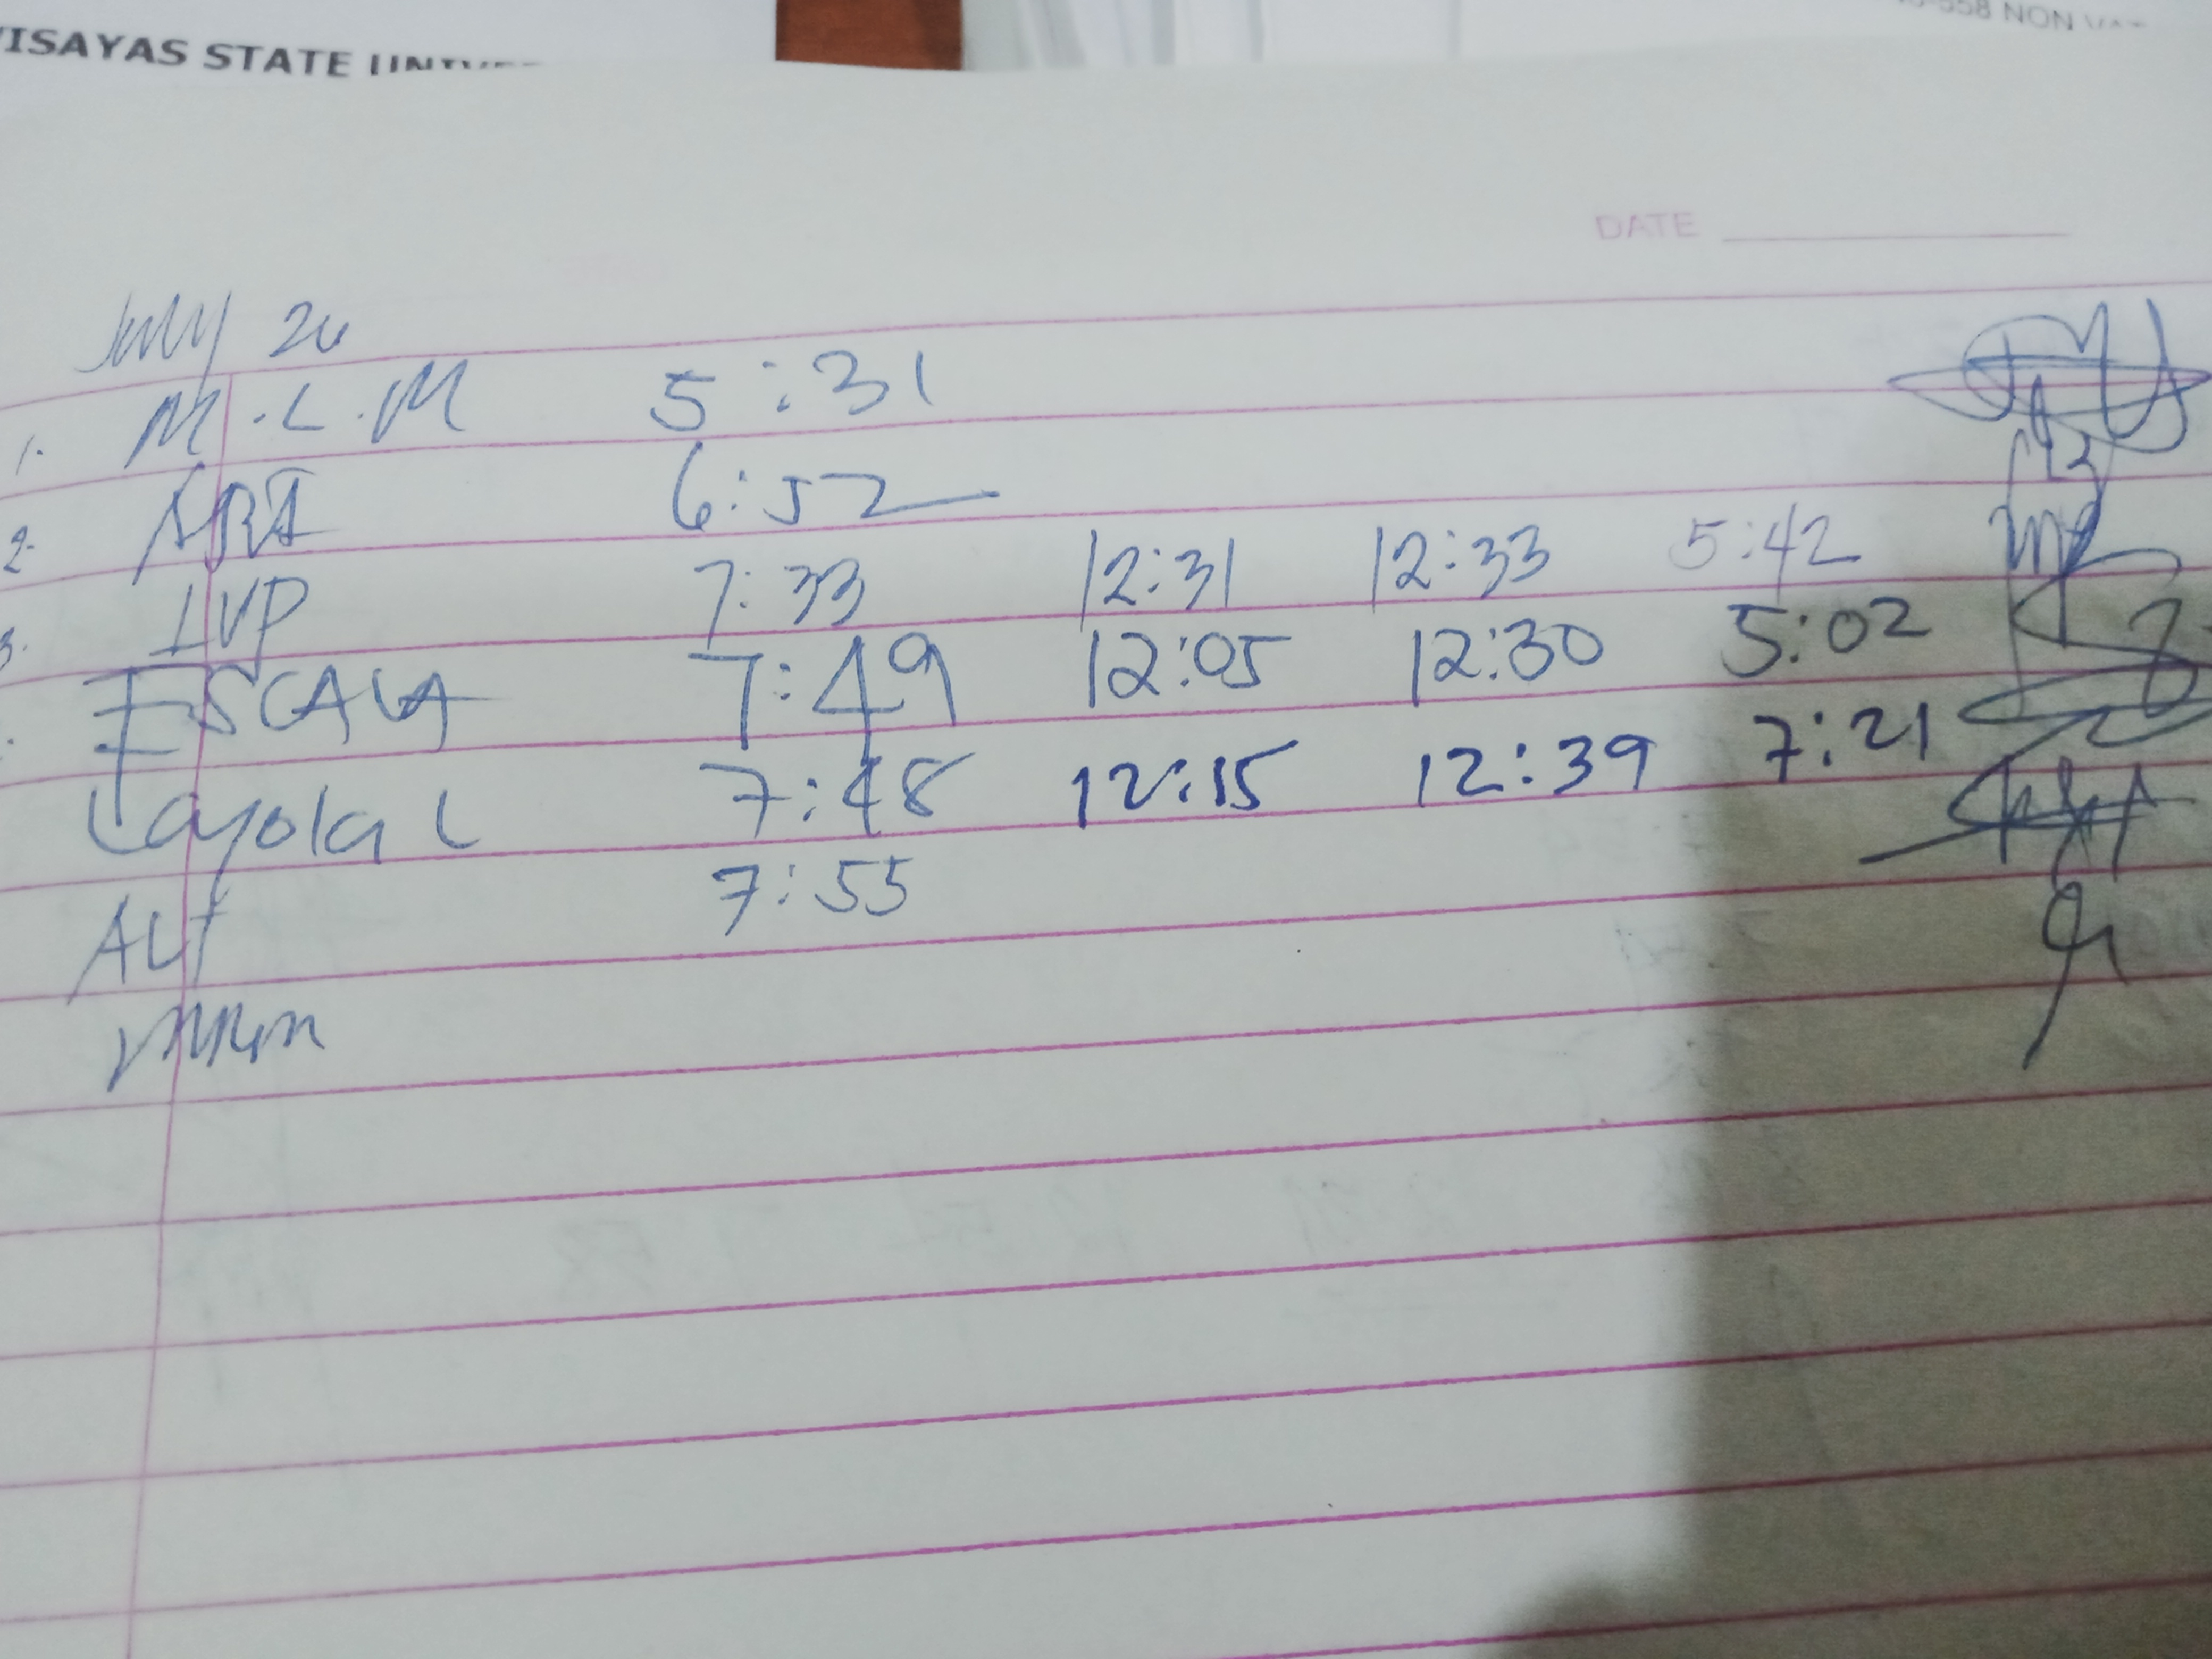 VISAYAS STATE
558 NON
DATE
July 26
1. M.L.M 5:31
2. 6:52
3. LVP 7:33 12:31 12:33 5:42
ESCALA 7:49 12:05 12:30 5:02
Loyola L 7:48 12:15 12:39 7:21
7:55